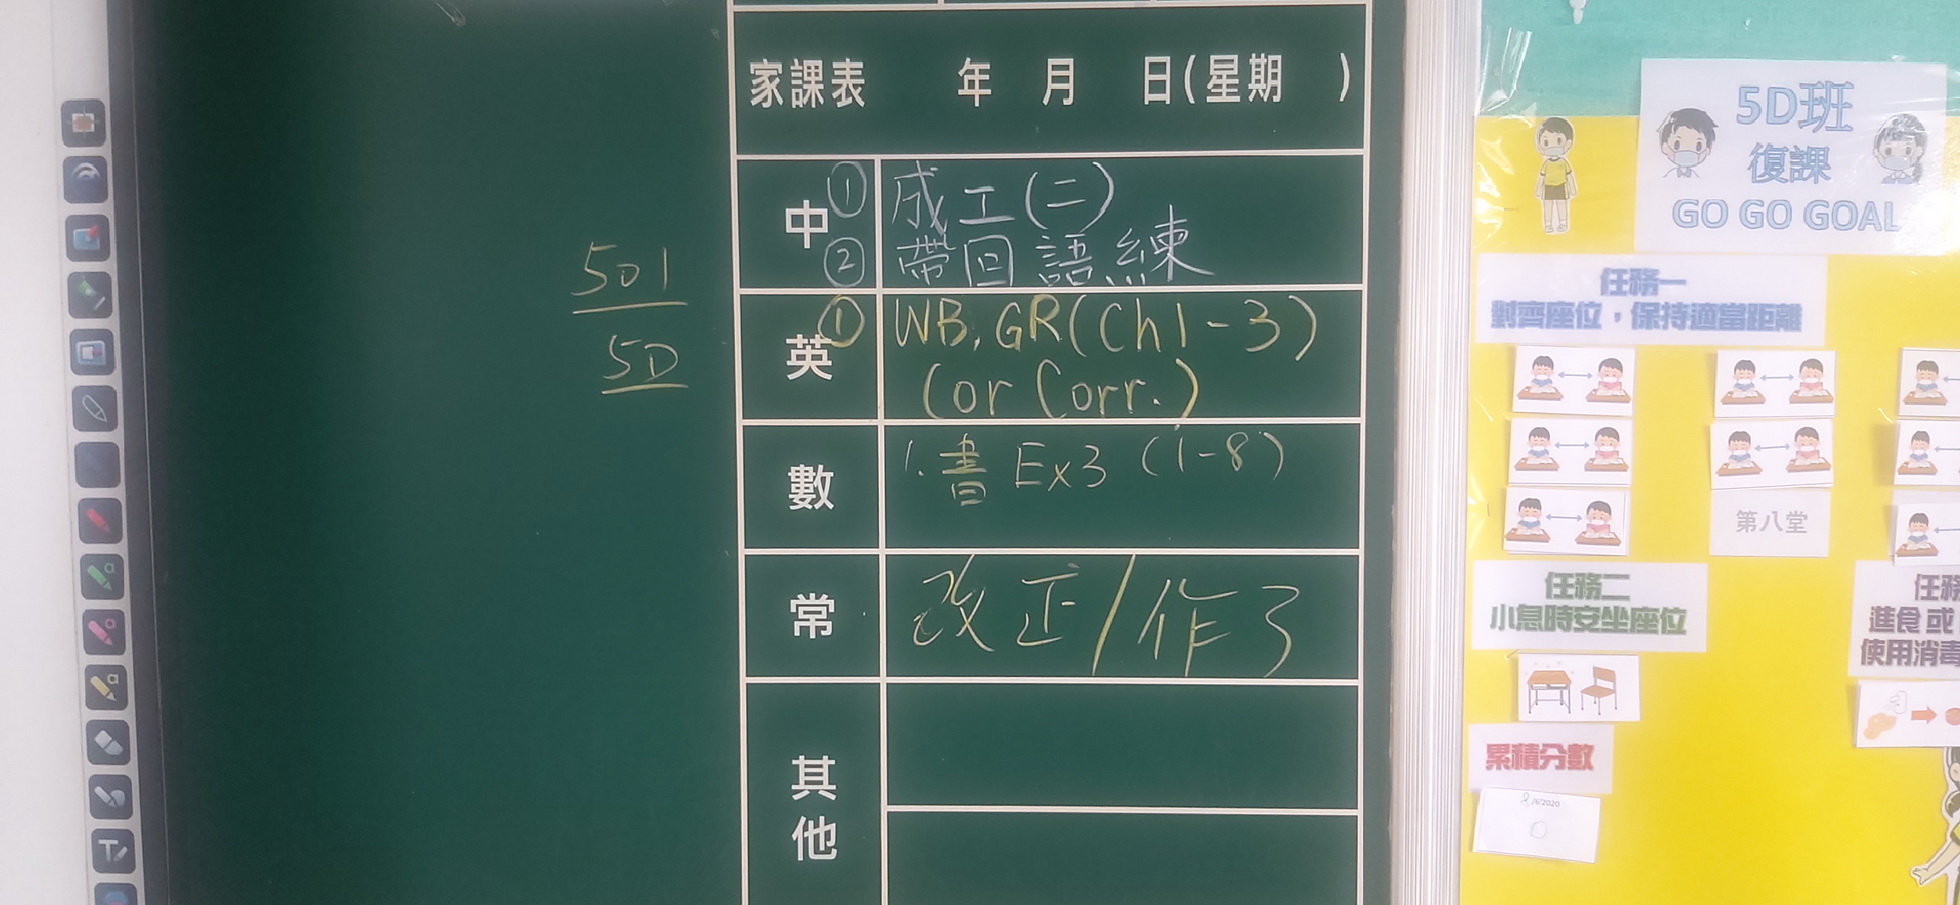 家課表 年 月 日(星期 )
中
① 成工(二)
② 帶回語練
英
① WB, GR(Ch1-3)
(or Corr.)
數
1. 書 Ex3 (1-8)
常
改正/作3
其他
501
5D
5D班
復課
GO GO GOAL
任務一
對齊座位，保持適當距離
第八堂
任務二
小息時安坐座位
進食或
使用消毒
累積分數
8/6/2020